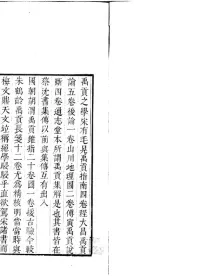 禹貢之學宋有毛晃禹貢指南四卷程大昌禹貢
論五卷後論一卷山川地理圖二卷傅寅禹貢說
斷四卷通志堂本所謂禹貢集解是也其書皆在
蔡沈書集傳以前與集傳互有出入
國朝胡渭禹貢錐指二十卷圖一卷援古驗今較
朱鶴齡禹貢長箋十二卷尤為精核明當當時與
梅文鼎天文竝稱絕學駸駸乎直欲駕宋諸書而